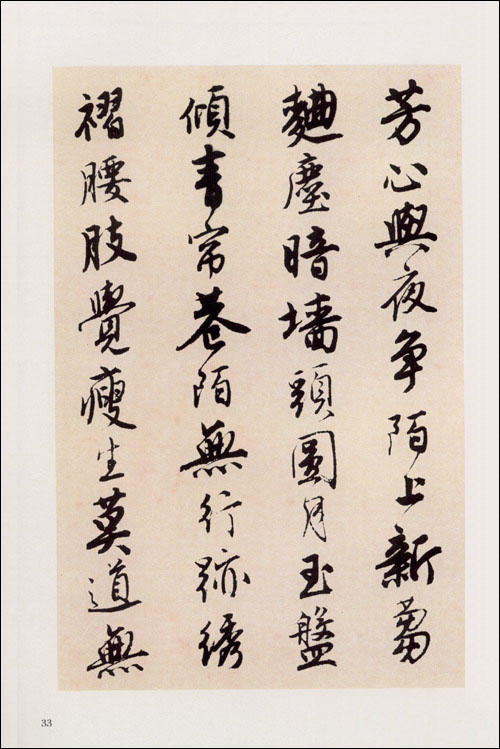 芳心與夜争陌上新蒭
麯塵暗墻頭圓月玉盤
傾青帘巷陌無行跡綉
褶腰肢覺瘦生莫道無
33